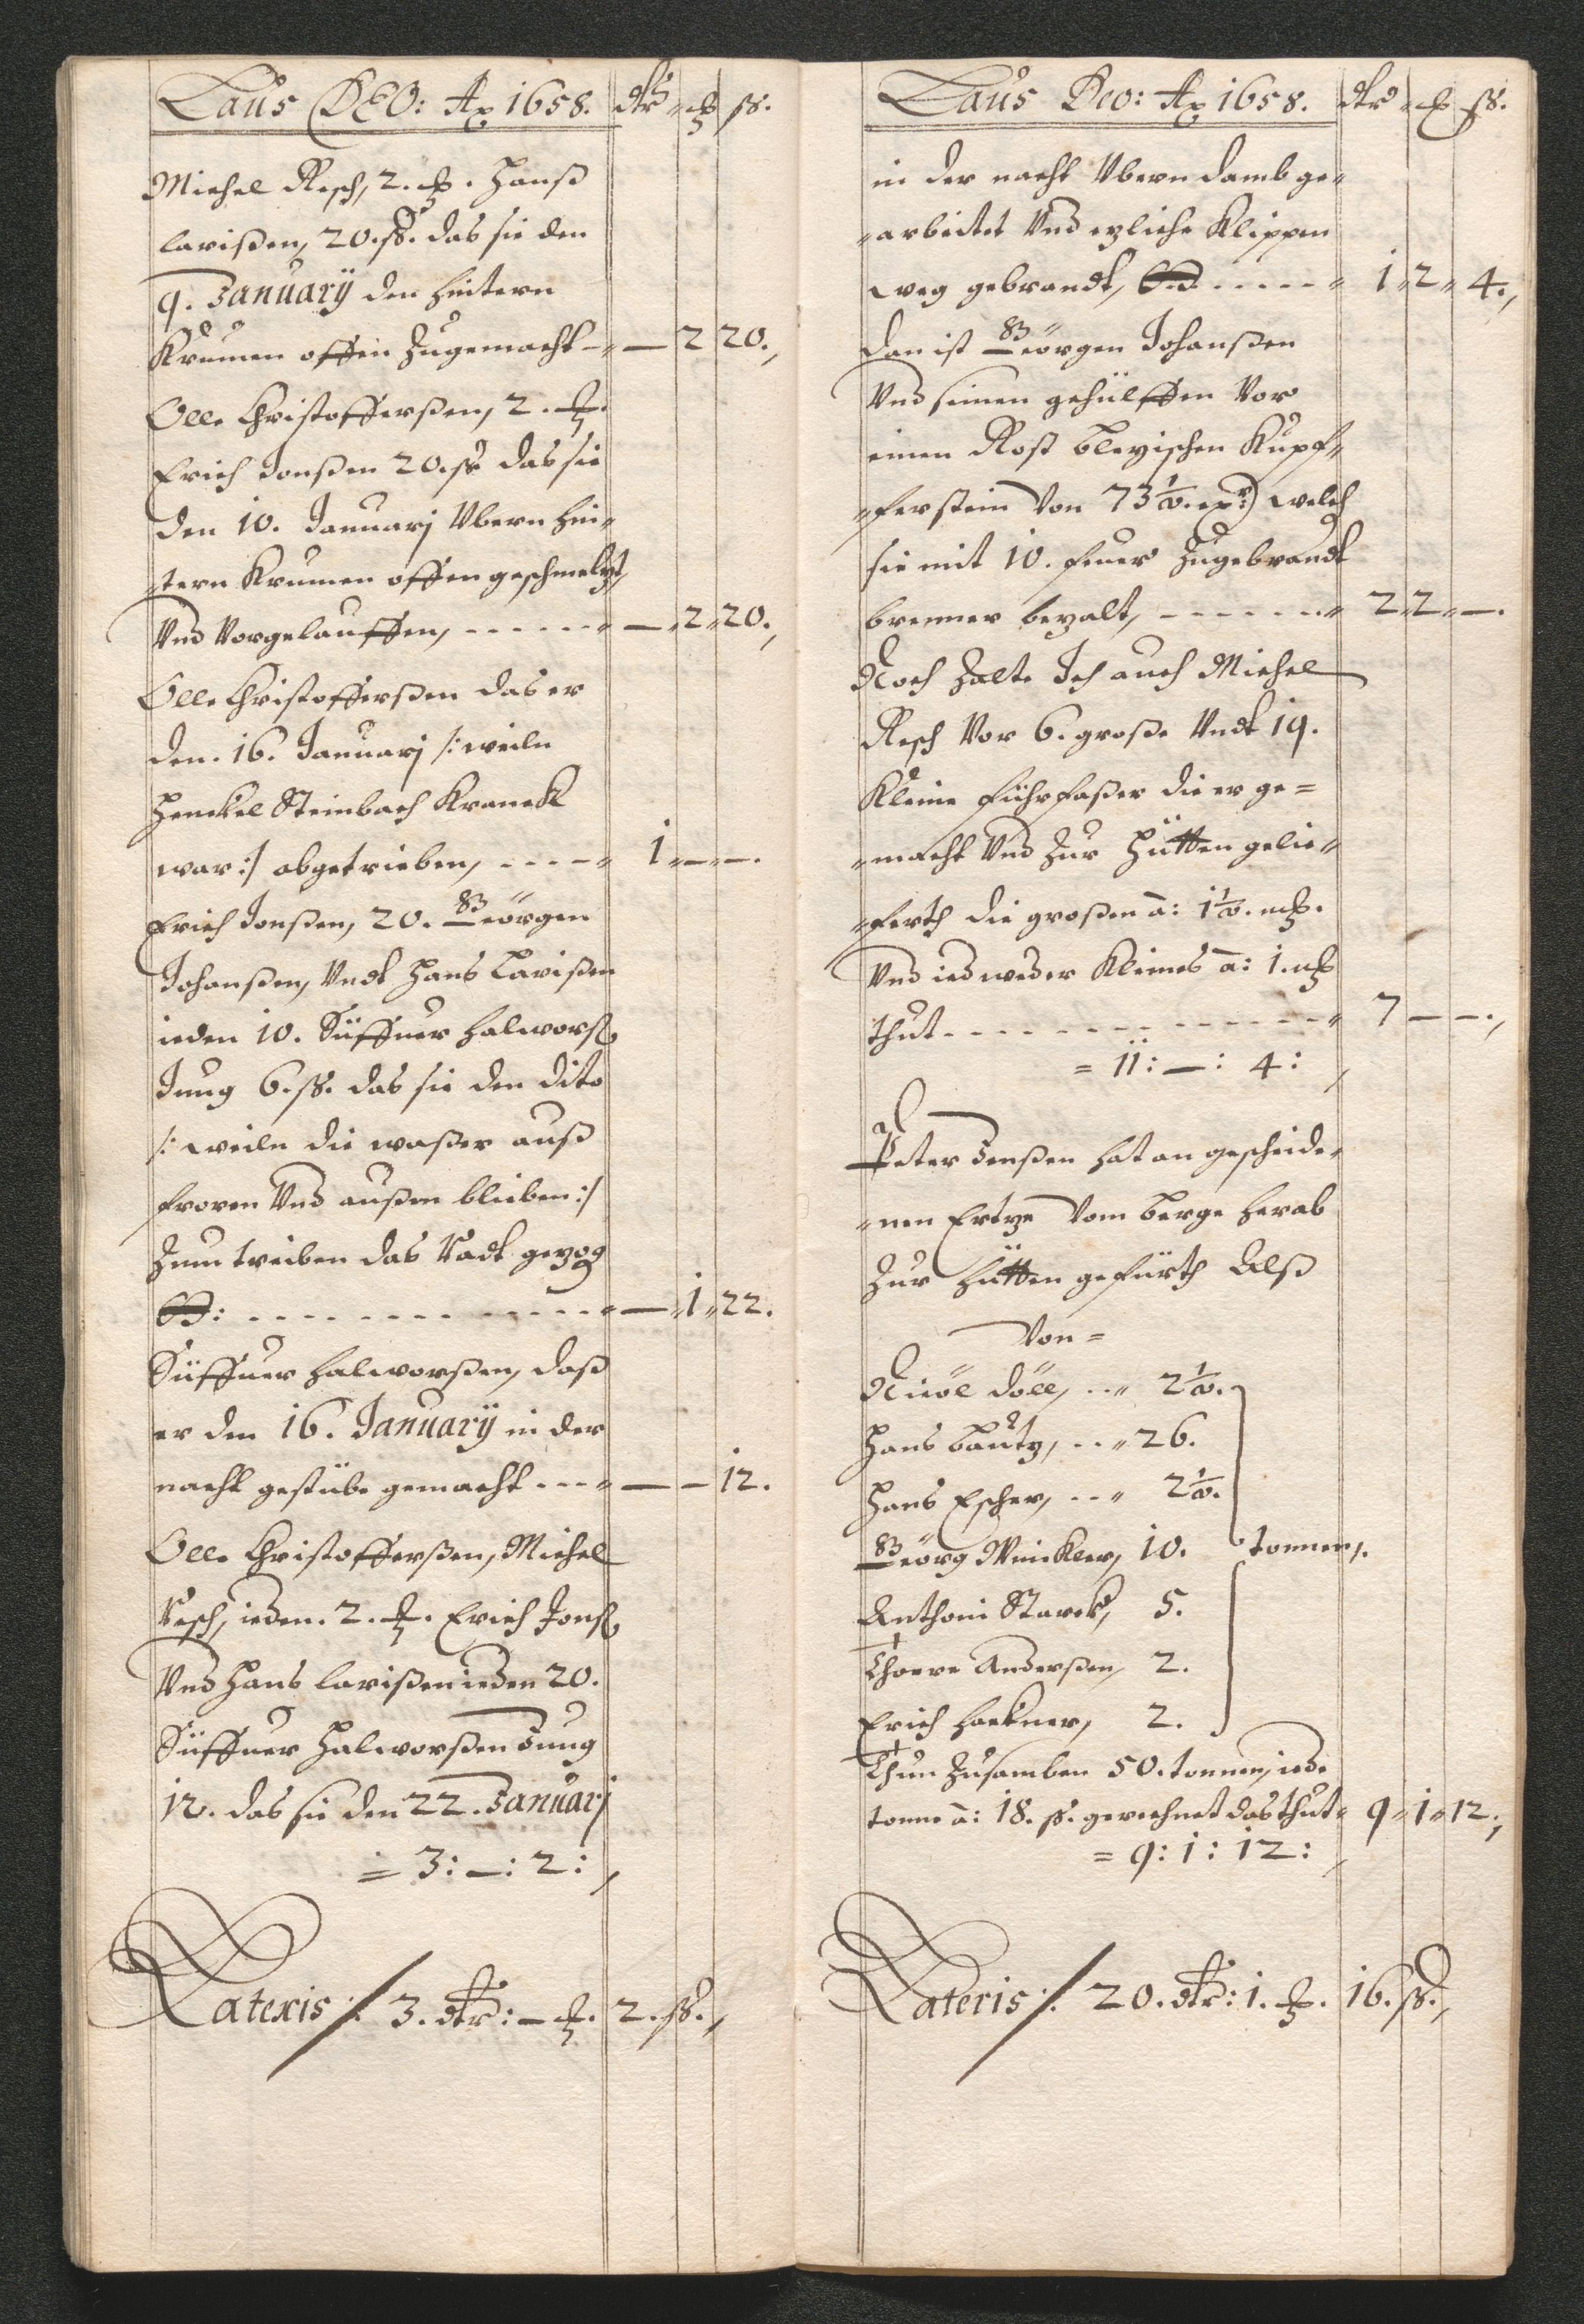 Laus DEO: Ao 1658. dlr mk ss.
Michel Resch, 2. mk. Hanß
larißen, 20. ss. das sie den
9. January den hintern
Krumen offen Zugemacht — 2 20.
Olle Christofferßen, 2. mk.
Erich Jonßen 20. ss das sie
den 10. Januarj Ubern hin-
tern Krumen offen geschmeltzt,
Und Vorgelauffen, — 2 20.
Olle Christofferßen das er
den. 16. Januarj /: weiln
Henckel Steinbach Kranck
war :/ abgetrieben, 1 — —.
Erich Jonßen, 20. Geörgen
Johanßen, Undt Hans Larißen
ieden 10. Süffuer Halworß
Jung 6. ss. das sie den dito
/: weiln die waßer auß
froren Und außen blieben :/
Zum treiben das Radt gezog
— 1 22.
Süffuer Halworßen, daß
er den 16. January in der
nacht gestübe gemacht — — 12.
Olle Christofferßen, Michel
Resch, ieden. 2. mk. Erich Jonß
Und Hans larißen ieden 20.
Süffuer Halworßen Jung
12. das sie den 22. Januarj
= 3: —: 2:
Lateris /: 3. dlr: — mk. 2. ss.
Laus Deo: Ao 1658. dlr mk ss.
in der nacht Ubern damb ge-
arbeitet Und ezliche Klippen
weg gebrandt, 1 2 4.
Dan ist Geörgen Johanßen
Und seinen gehülffen Vor
einen Rost bleyischen Kupf-
ferstein Von 73 1/2. welch
sie mit 10. feuer Zugebrandt
brenner bezalt, 2 2 —.
Noch Zalte Ich auch Michel
Resch Vor 6. große Undt 19.
Kleine führfaßer die er ge=
macht Und Zur Hütten gelie-
ferth die großen à: 1 1/2. mk.
Und iedweder Kleines à: 1. mk
thut 7 — —.
= 11: —: 4:
Peter Jenßen hat an gescheide-
nen Ertze Vom berge herab
Zur Hütten geführth Alß
Von =
Nicöl döll, 2 1/2.
Hans bautz, 26.
Hans Escher, 2 1/2.
Geörg Winckler, 10. tonnen.
Anthoni Starck, 5.
Thorre Anderßen, 2.
Erich Hackner, 2.
Thun Zusamben 50. tonnen, iede
tonne à: 18. ss. gerechnet das thut 9 1 12.
= 9: 1: 12:
Lateris /: 20. dlr: 1. mk. 16. ss.